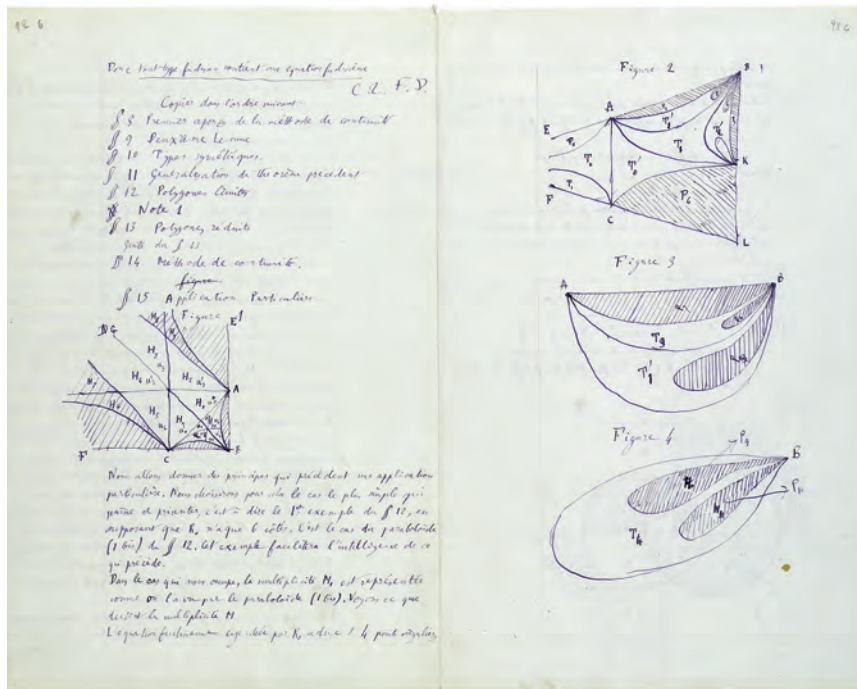 Donc tout type fuchsien contient une équation fuchsienne
C. Q. F. D.
Copier dans l'ordre suivant
§ 8 Premier aperçu de la méthode de continuité
§ 9 Deuxième Lemme
§ 10 Types symétriques.
§ 11 Généralisation du théorème précédent
§ 12 Polygones limites
Note 1
§ 13 Polygones réduits
Suite du § 13
§ 14 Méthode de continuité.
figure
§ 15 Application Particulière
Figure 1
D G E
A
F C B
Nous allons donner des principes qui précèdent une application
particulière. Nous choisirons pour cela le cas le plus simple qui
puisse se présenter, c'est à dire le 1er exemple du § 12, en
supposant que R, n'a que 6 côtés. C'est le cas du paraboloïde
(1 bis) du § 12. Cet exemple facilitera l'intelligence de ce
qui précède.
Dans le cas qui nous occupe, la multiplicité M, est représentée
comme on l'a vu par le paraboloïde (1 bis). Voyons ce que
devient la multiplicité M
L'équation fuchsienne engendrée par R, admet 4 points singuliers
Figure 2
B
A
E
K
F
C
P6
L
Figure 3
A B
T9
T'1
Figure 4
P9
B
P11
T4